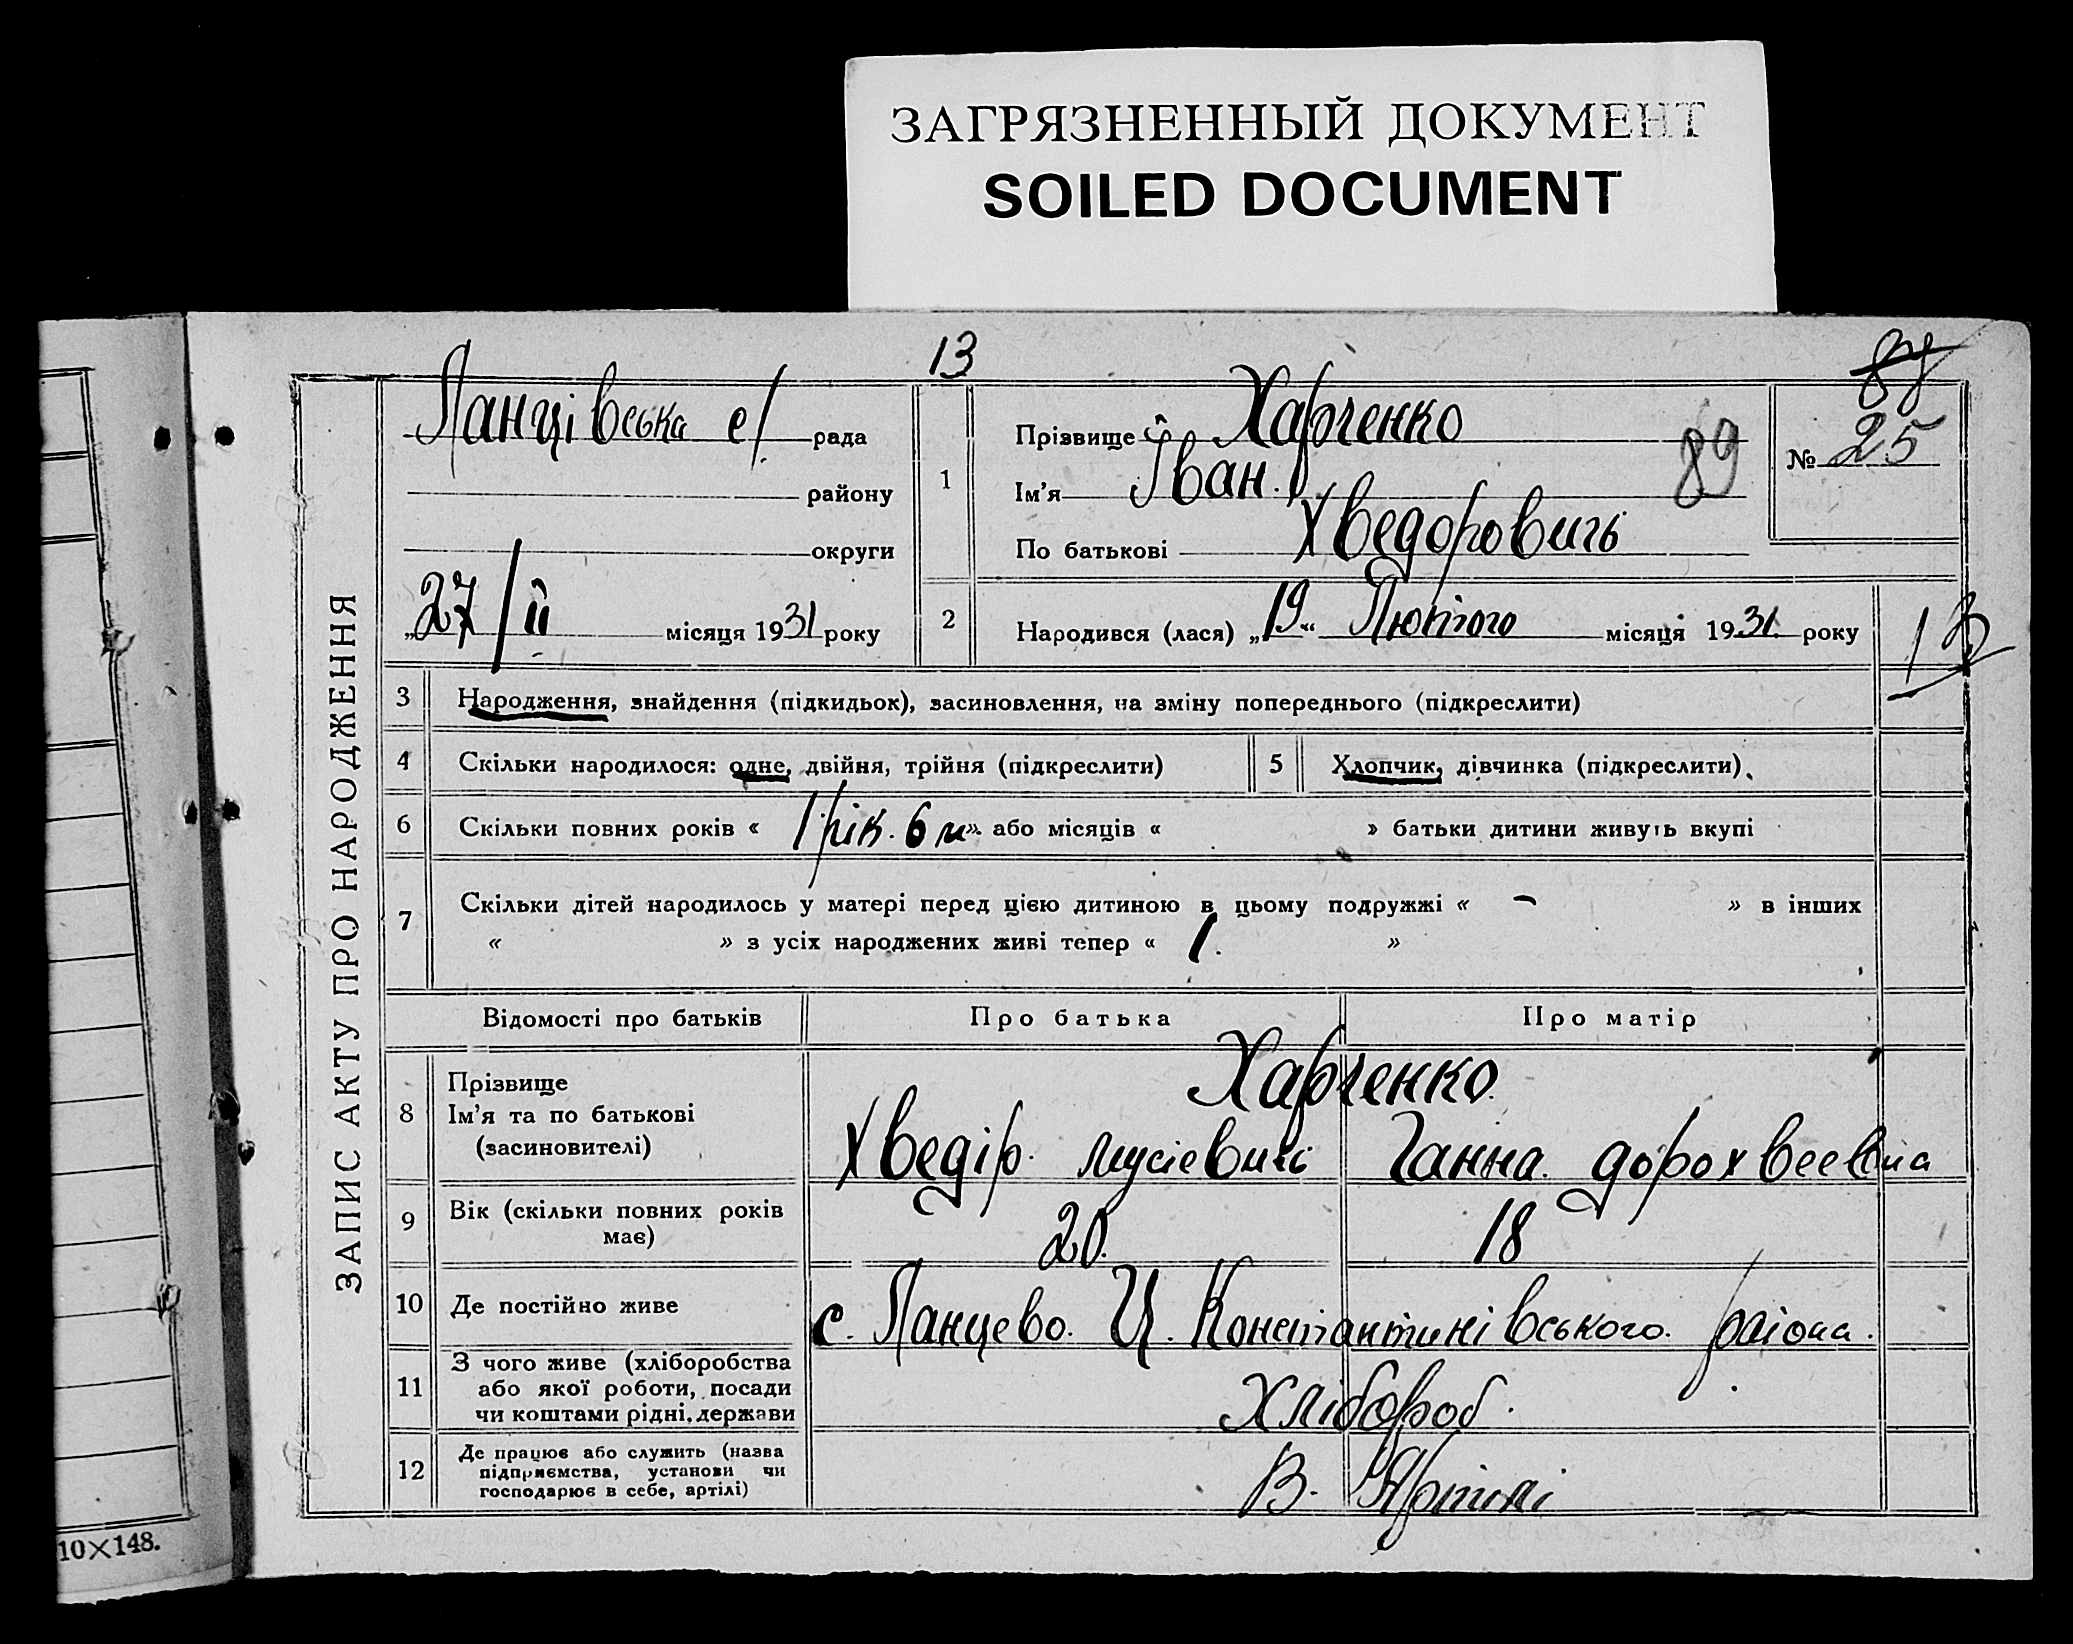 ЗАГРЯЗНЕННЫЙ ДОКУМЕНТ
SOILED DOCUMENT
13
89
Ланцівська с/ рада
району
округи
„27/ІІ місяця 1931 року
1
Прізвище Харченко
Ім'я Іван.
По батькові Хведоровичь
89
№ 25
2
Народився (лася) „19“ Лютого місяця 1931. року
13
ЗАПИС АКТУ ПРО НАРОДЖЕННЯ
3 Народження, знайдення (підкидьок), засиновлення, на зміну попереднього (підкреслити)
4 Скільки народилося: одне, двійня, трійня (підкреслити) 5 Хлопчик, дівчинка (підкреслити)
6 Скільки повних років « 1 рік. 6 м » або місяців « » батьки дитини живуть вкупі
7 Скільки дітей народилось у матері перед цією дитиною в цьому подружжі « – » в інших
« » з усіх народжених живі тепер « 1. »
Відомості про батьків Про батька Про матір
8 Прізвище Харченко.
Ім'я та по батькові Хведір. Мусіевичь Ганна. Дорохвеевна
(засиновителі)
9 Вік (скільки повних років має) 20. 18
10 Де постійно живе с. Ланцево. Ц. Констянтинівського. раіона.
11 З чого живе (хліборобства або якої роботи, посади чи коштами рідні, держави Хлібороб.
12 Де працює або служить (назва підприємства, установи чи господарює в себе, артілі) В. Артілі
10×148.